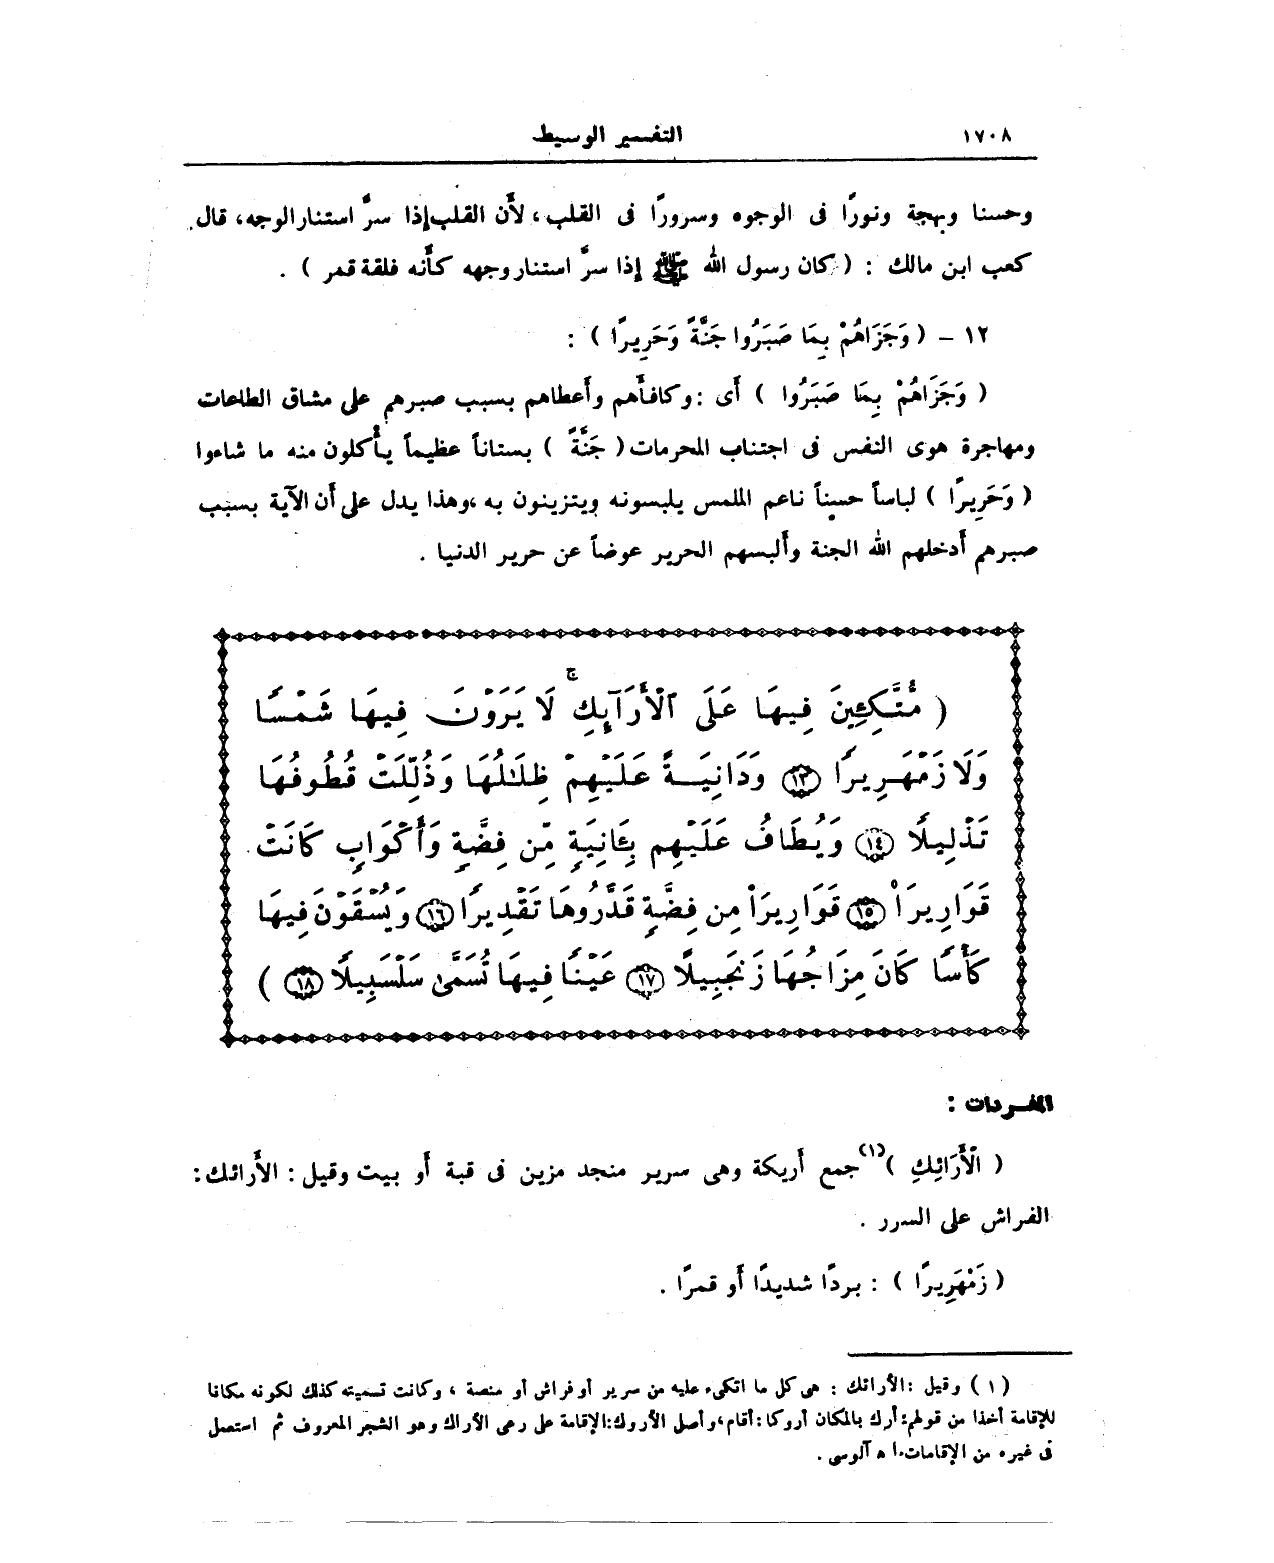 ١٧٠٨ التفسير الوسيط
وحسنا وبهجة ونورًا فى الوجوه وسرورًا فى القلب ، لأَن القلب إذا سرَّ استنار الوجه ، قال
كعب ابن مالك : ( كان رسول الله ﷺ إذا سرَّ استنار وجهه كأَنه فلقة قمر ) .
١٢ – ( وَجَزَاهُمْ بِمَا صَبَرُوا جَنَّةً وَحَرِيرًا ) :
( وَجَزَاهُمْ بِمَا صَبَرُوا ) أَى : وكافأَهم وأَعطاهم بسبب صبرهم على مشاق الطاعات
ومهاجرة هوى النفس فى اجتناب المحرمات ( جَنَّةً ) بستاناً عظيماً يأْكلون منه ما شاءوا
( وَحَرِيرًا ) لباساً حسيناً ناعم الملمس يلبسونه ويتزينون به ، وهذا يدل على أَن الآية بسبب
صبرهم أَدخلهم الله الجنة وأَلبسهم الحرير عوضاً عن حرير الدنيا .
( مُّتَّكِـِٔينَ فِيهَا عَلَى ٱلْأَرَآئِكِ ۖ لَا يَرَوْنَ فِيهَا شَمْسًا
وَلَا زَمْهَرِيرًا ۝١٣ وَدَانِيَةً عَلَيْهِمْ ظِلَـٰلُهَا وَذُلِّلَتْ قُطُوفُهَا
تَذْلِيلًا ۝١٤ وَيُطَافُ عَلَيْهِم بِـَٔانِيَةٍ مِّن فِضَّةٍ وَأَكْوَابٍ كَانَتْ
قَوَارِيرَا۠ ۝١٥ قَوَارِيرَا۟ مِن فِضَّةٍ قَدَّرُوهَا تَقْدِيرًا ۝١٦ وَيُسْقَوْنَ فِيهَا
كَأْسًا كَانَ مِزَاجُهَا زَنجَبِيلًا ۝١٧ عَيْنًا فِيهَا تُسَمَّىٰ سَلْسَبِيلًا ۝١٨ )
المفـردات :
( الْأَرَائِكِ )(١) جمع أَريكة وهى سرير منجد مزين فى قبة أَو بيت وقيل : الأَرائك :
الفراش على السرر .
( زَمْهَرِيرًا ) : بردًا شديدًا أَو قمرًا .
( ١ ) وقيل : الأرائك : هى كل ما اتكىء عليه من سرير أو فراش أو منصة ، وكانت تسميته كذلك لكونه مكانا
للإقامة أخذا من قولهم : أرك بالمكان أروكا : أقام ، وأصل الأروك : الإقامة على رعى الأراك وهو الشجر المعروف ثم استعمل
فى غيره من الإقامات . ا ه آلوسى .